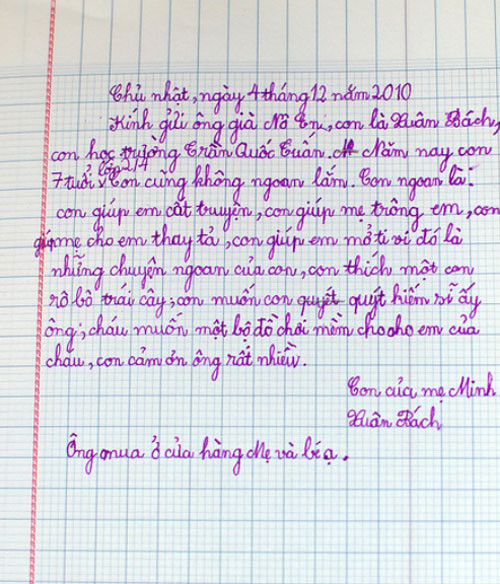 Chủ nhật, ngày 4 tháng 12 năm 2010
Kính gửi ông già Nô En, con là Xuân Bách,
con học trường Trần Quốc Tuấn. Năm nay con
lớp 2/7
7 tuổi. Con cũng không ngoan lắm. Con ngoan là:
con giúp em cất truyện, con giúp mẹ trông em, con
giúp mẹ cho em thay tả, con giúp em mở ti vi đó là
những chuyện ngoan của con, con thích một con
rô bô trái cây; con muốn con quyết quýt hiếm sĩ ấy
ông; cháu muốn một bộ đồ chơi mềm cho cho em của
cháu, con cảm ơn ông rất nhiều.
Con của mẹ Minh
Xuân Bách
Ông mua ở cửa hàng Mẹ và bé ạ.